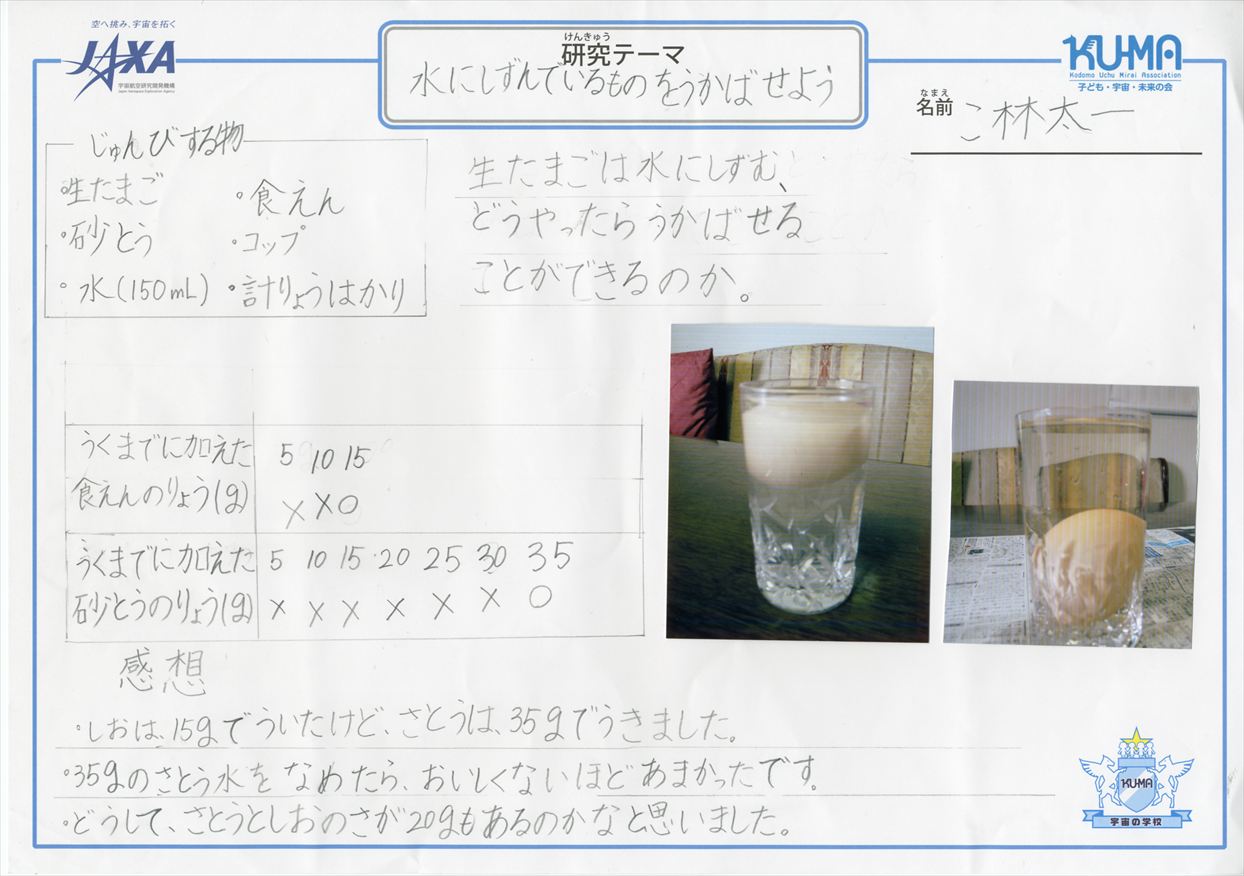 空へ挑み、宇宙を拓く
JAXA
宇宙航空研究開発機構
Japan Aerospace Exploration Agency
けんきゅう
研究テーマ
水にしずんでいるものをうかばせよう
KU-MA
Kodomo Uchu Mirai Association
子ども・宇宙・未来の会
なまえ
名前 こ林太一
じゅんびする物
・生たまご ・食えん
・砂とう ・コップ
・水(150mL) ・計りょうはかり
生たまごは水にしずむ、
どうやったらうかばせる
ことができるのか。
うくまでに加えた 5 10 15
食えんのりょう(g) × × ○
うくまでに加えた 5 10 15 20 25 30 35
砂とうのりょう(g) × × × × × × ○
感想
・しおは、15gでういたけど、さとうは、35gでうきました。
・35gのさとう水をなめたら、おいしくないほどあまかったです。
・どうして、さとうとしおのさが20gもあるのかなと思いました。
KU-MA
宇宙の学校